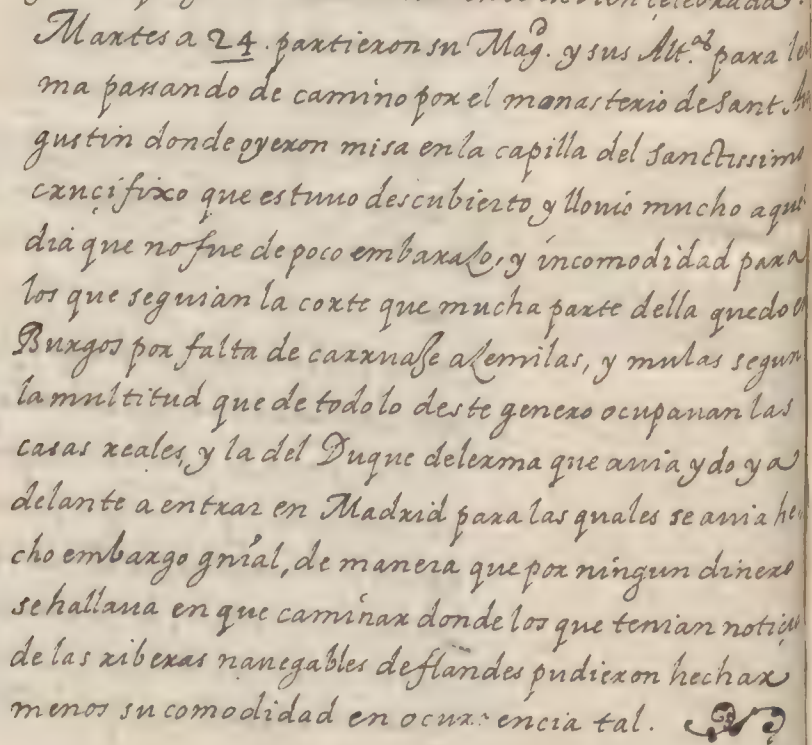 celebrada.
Martes a 24. partieron su Mag.d y sus Alt.as para ler
ma passando de camino por el monasterio de Sant Au
gustin donde oyeron misa en la capilla del Sanctissimo
cruçifixo que estuuo descubierto y llouio mucho aquel
dia que no fue de poco embaraço, y incomodidad para
los que seguian la corte que mucha parte della quedo en
Burgos por falta de carruaße açemilas, y mulas segun
la multitud que de todo lo deste genero ocupauan las
casas reales, y la del Duque de lerma que auia ydo ya
delante a entrar en Madrid para las quales se auia he
cho embargo gnĩal, de manera que por ningun dinero
se hallaua en que caminar donde los que tenian noticia
de las riberas nauegables de flandes pudieron hechar
menos su comodidad en ocurrencia tal.